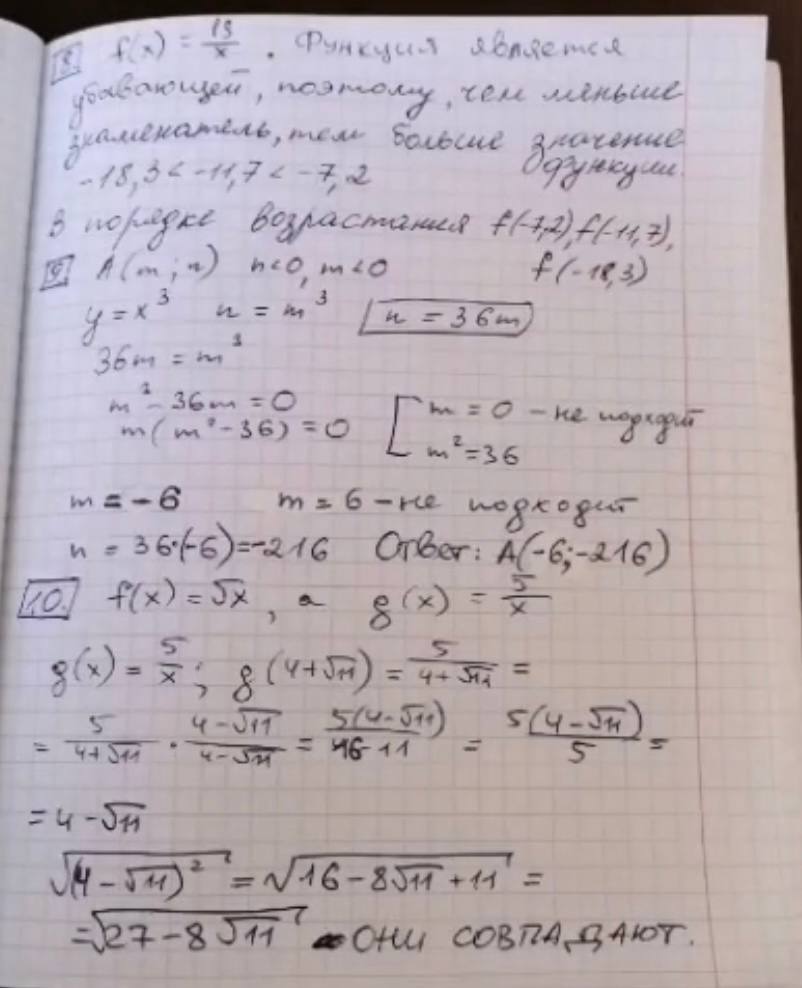 8. f(x) = 13/x . Функция является
убывающей, поэтому, чем меньше
знаменатель, тем больше значение
функции.
-18,3 < -11,7 < -7,2
В порядке возрастания f(-7,2), f(-11,7),
f(-18,3)
9. A(m; n) n<0, m<0
y = x³ n = m³ n = 36m
36m = m³
m³ - 36m = 0
m(m² - 36) = 0 [ m = 0 - не подходит
m² = 36
m = -6 m = 6 - не подходит
n = 36·(-6) = -216 Ответ: A(-6; -216)
10. f(x) = √x, а g(x) = 5/x
g(x) = 5/x; g(4+√11) = 5/(4+√11) =
= 5/(4+√11) · (4-√11)/(4-√11) = 5(4-√11)/(16-11) = 5(4-√11)/5 =
= 4 - √11
√((4-√11)²) = √(16-8√11+11) =
= √(27-8√11) - ОНИ СОВПАДАЮТ.